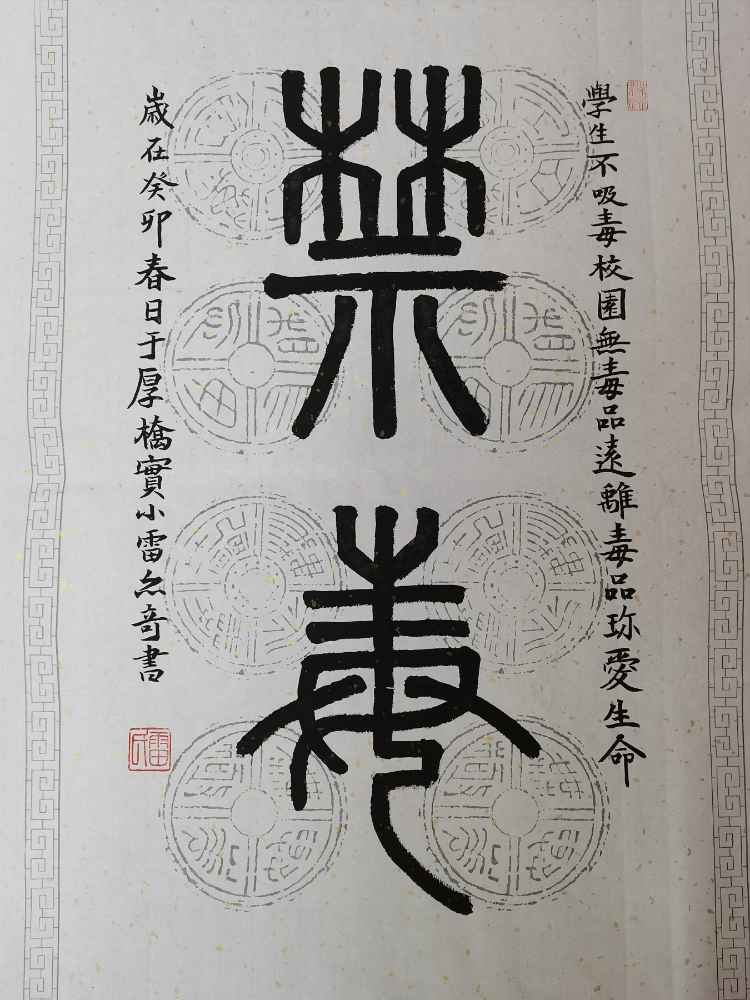 學生不吸毒校園無毒品遠離毒品珎愛生命
禁毒
嵗在癸卯春日于厚橋實小雷奇書
雷氏